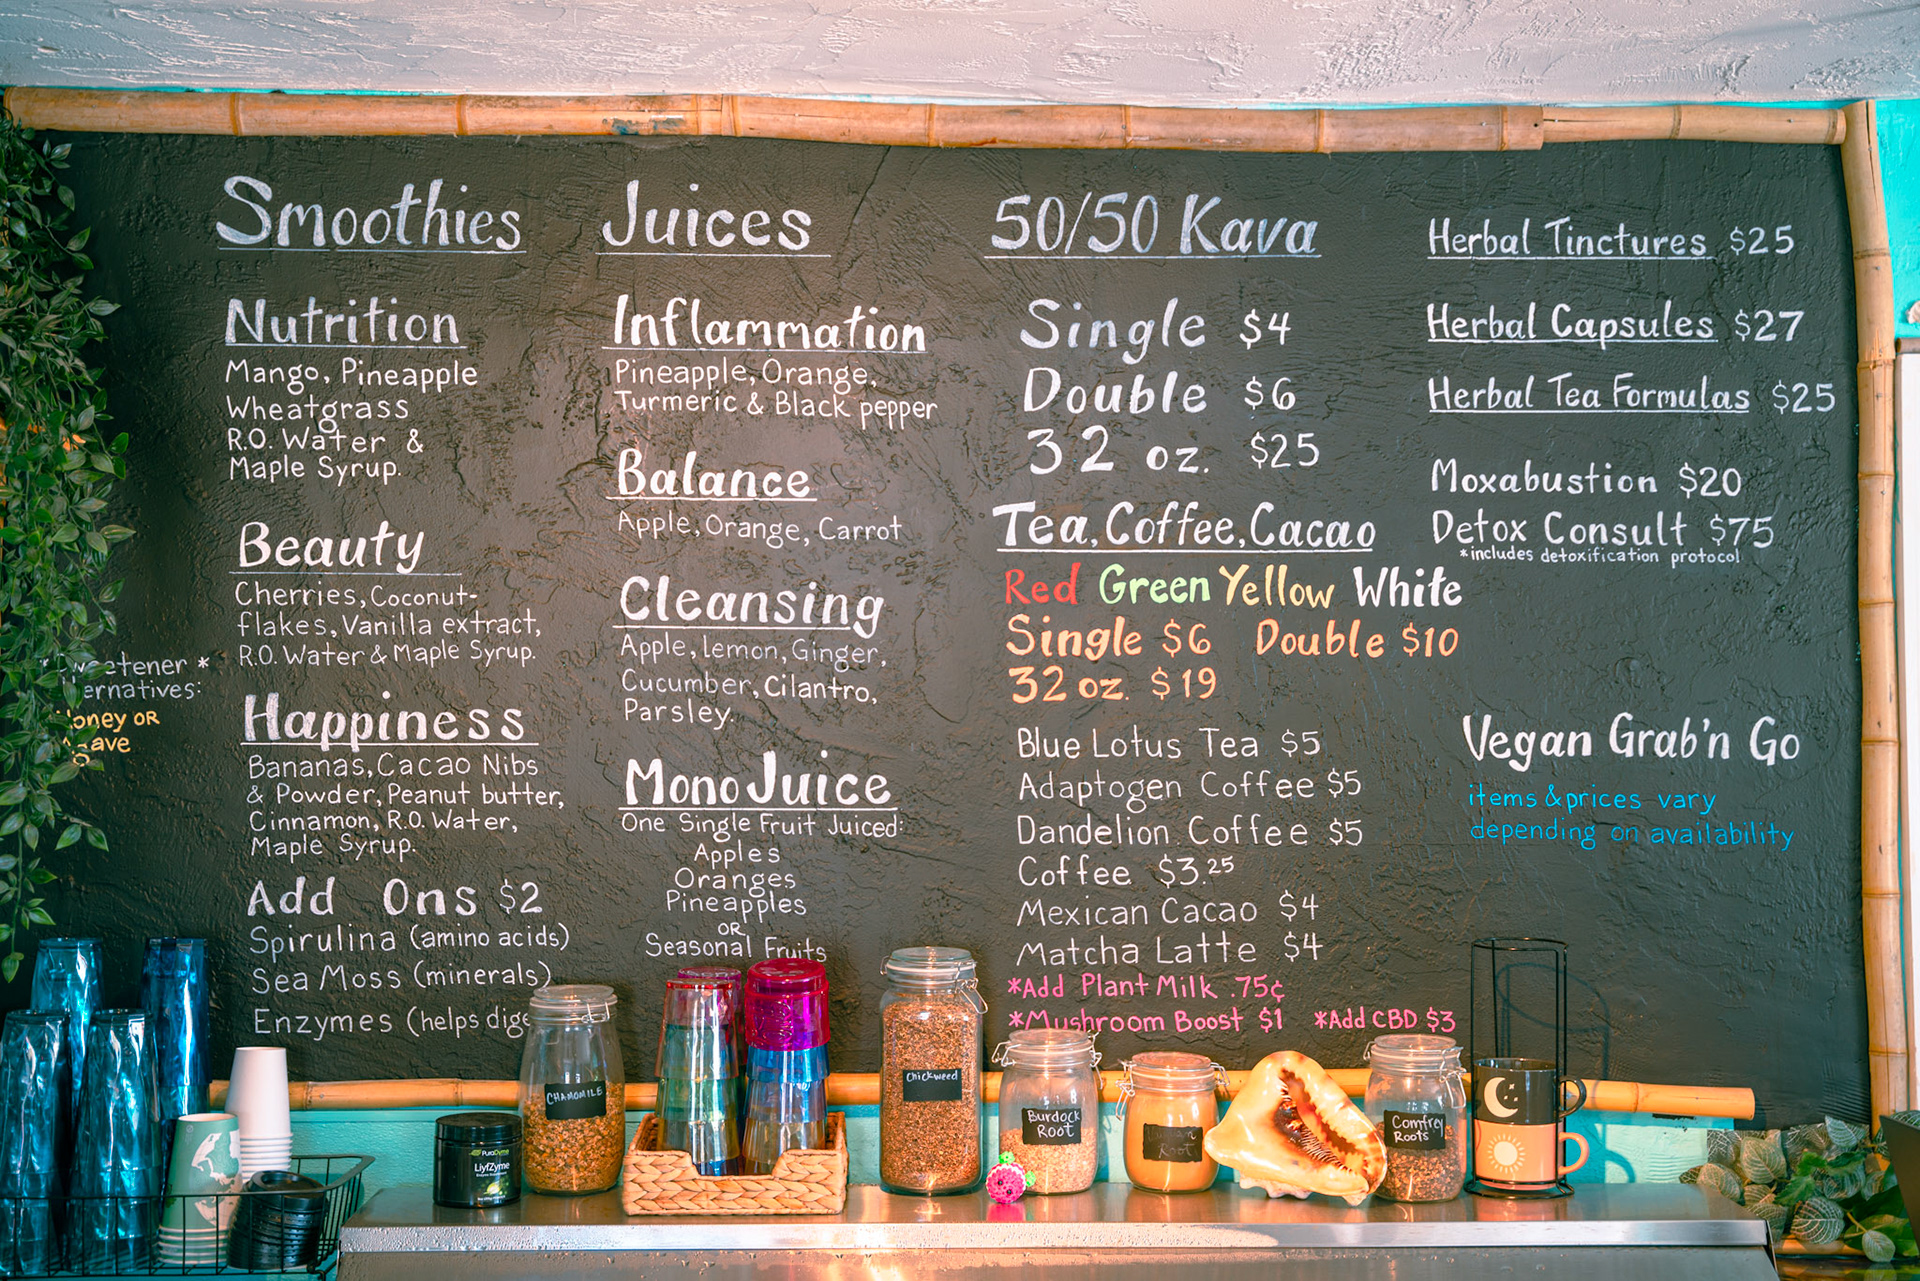 Smoothies
Nutrition
Mango, Pineapple
Wheatgrass
R.O. Water &
Maple Syrup.
Beauty
Cherries, Coconut-
flakes, Vanilla extract,
R.O. Water & Maple Syrup.
Happiness
Bananas, Cacao Nibs
& Powder, Peanut butter,
Cinnamon, R.O. Water,
Maple Syrup.
Add Ons $2
Spirulina (amino acids)
Sea Moss (minerals)
Enzymes (helps
*
OR
Juices
Inflammation
Pineapple, Orange,
Turmeric & Black pepper
Balance
Apple, Orange, Carrot
Cleansing
Apple, lemon, Ginger,
Cucumber, Cilantro,
Parsley.
Mono Juice
One Single Fruit Juiced:
Apples
Oranges
Pineapples
OR
Seasonal Fruits
50/50 Kava
Single $4
Double $6
32 oz. $25
Tea, Coffee, Cacao
Red Green Yellow White
Single $6 Double $10
32 oz. $19
Blue Lotus Tea $5
Adaptogen Coffee $5
Dandelion Coffee $5
Coffee $3.25
Mexican Cacao $4
Matcha Latte $4
*Add Plant Milk .75¢
*Mushroom Boost $1 *Add CBD $3
Herbal Tinctures $25
Herbal Capsules $27
Herbal Tea Formulas $25
Moxabustion $20
Detox Consult $75
*includes detoxification protocol
Vegan Grab'n Go
items & prices vary
depending on availability
PuraDyme
LiyfZyme
CHAMOMILE
Chickweed
Burdock
Root
Root
Comfrey
Roots